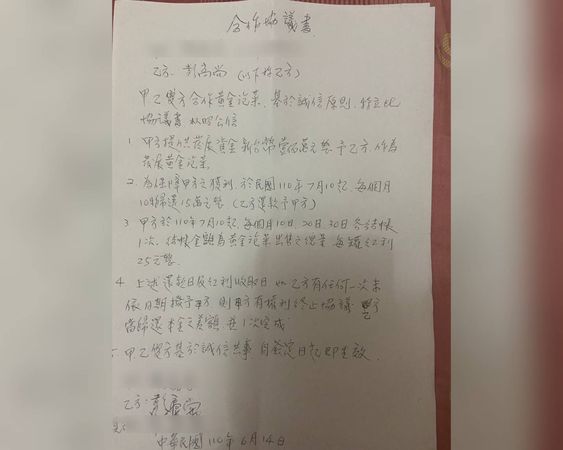 合作協議書
乙方: 彭高尚 (以下稱乙方)
甲乙雙方合作黃金泡菜, 基於誠信原則, 特立此
協議書 以昭公信
1. 甲方提供發展資金新台幣壹佰萬元整予乙方, 作為
發展黃金泡菜
2. 為保障甲方之獲利, 於民國110年7月10起, 每個月
10號歸還15萬元整 (乙方還款予甲方)
3 甲方於110年7月10起, 每個月10日.20日.30日各結帳
1次, 結帳金額為黃金泡菜出售之總量 每罐紅利
25元整.
4. 上述還款日及紅利收取日 乙方有任何一次未
依日期撥予甲方 則甲方有權利終止協議 乙方
當歸還本金之差額 並1次完成
5. 甲乙雙方基於誠信共事 自簽定日起即生效.
乙方:
中華民國110年6月14日